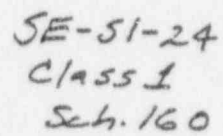 SE-SI-24
Class 1
Sch. 160